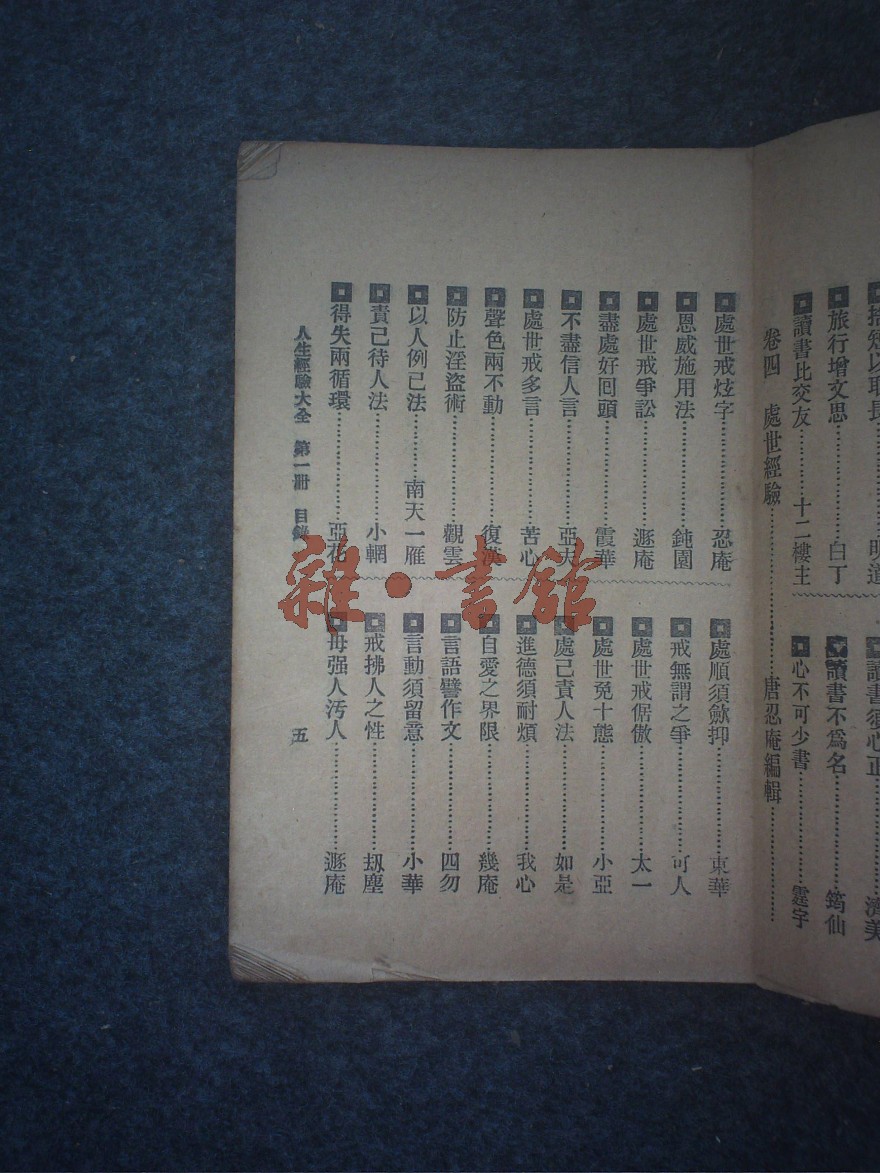 旅行增文思……白丁
讀書比交友……十二樓主
讀書不爲名……筠仙
心不可少書……霆宇
卷四 處世經驗……唐忍庵編輯
處世戒炫字……忍庵
恩威施用法……鈍園
處世戒爭訟……遯庵
盡處好回頭……霞華
不盡信人言……亞夫
處世戒多言……苦心
聲色兩不動……復漢
防止淫盜術……觀雲
以人例已法……南天一雁
責己待人法……小輞
得失兩循環……亞花
處順須歛抑……東華
戒無謂之爭……可人
處世戒倨傲……太一
處世免十態……小亞
處己責人法……如是
進德須耐煩……我心
自愛之界限……幾庵
言語譬作文……四勿
言動須留意……小華
戒拂人之性……刼塵
毋强人汚人……遯庵
人生經驗大全 第一册 目錄 五
雜·書館